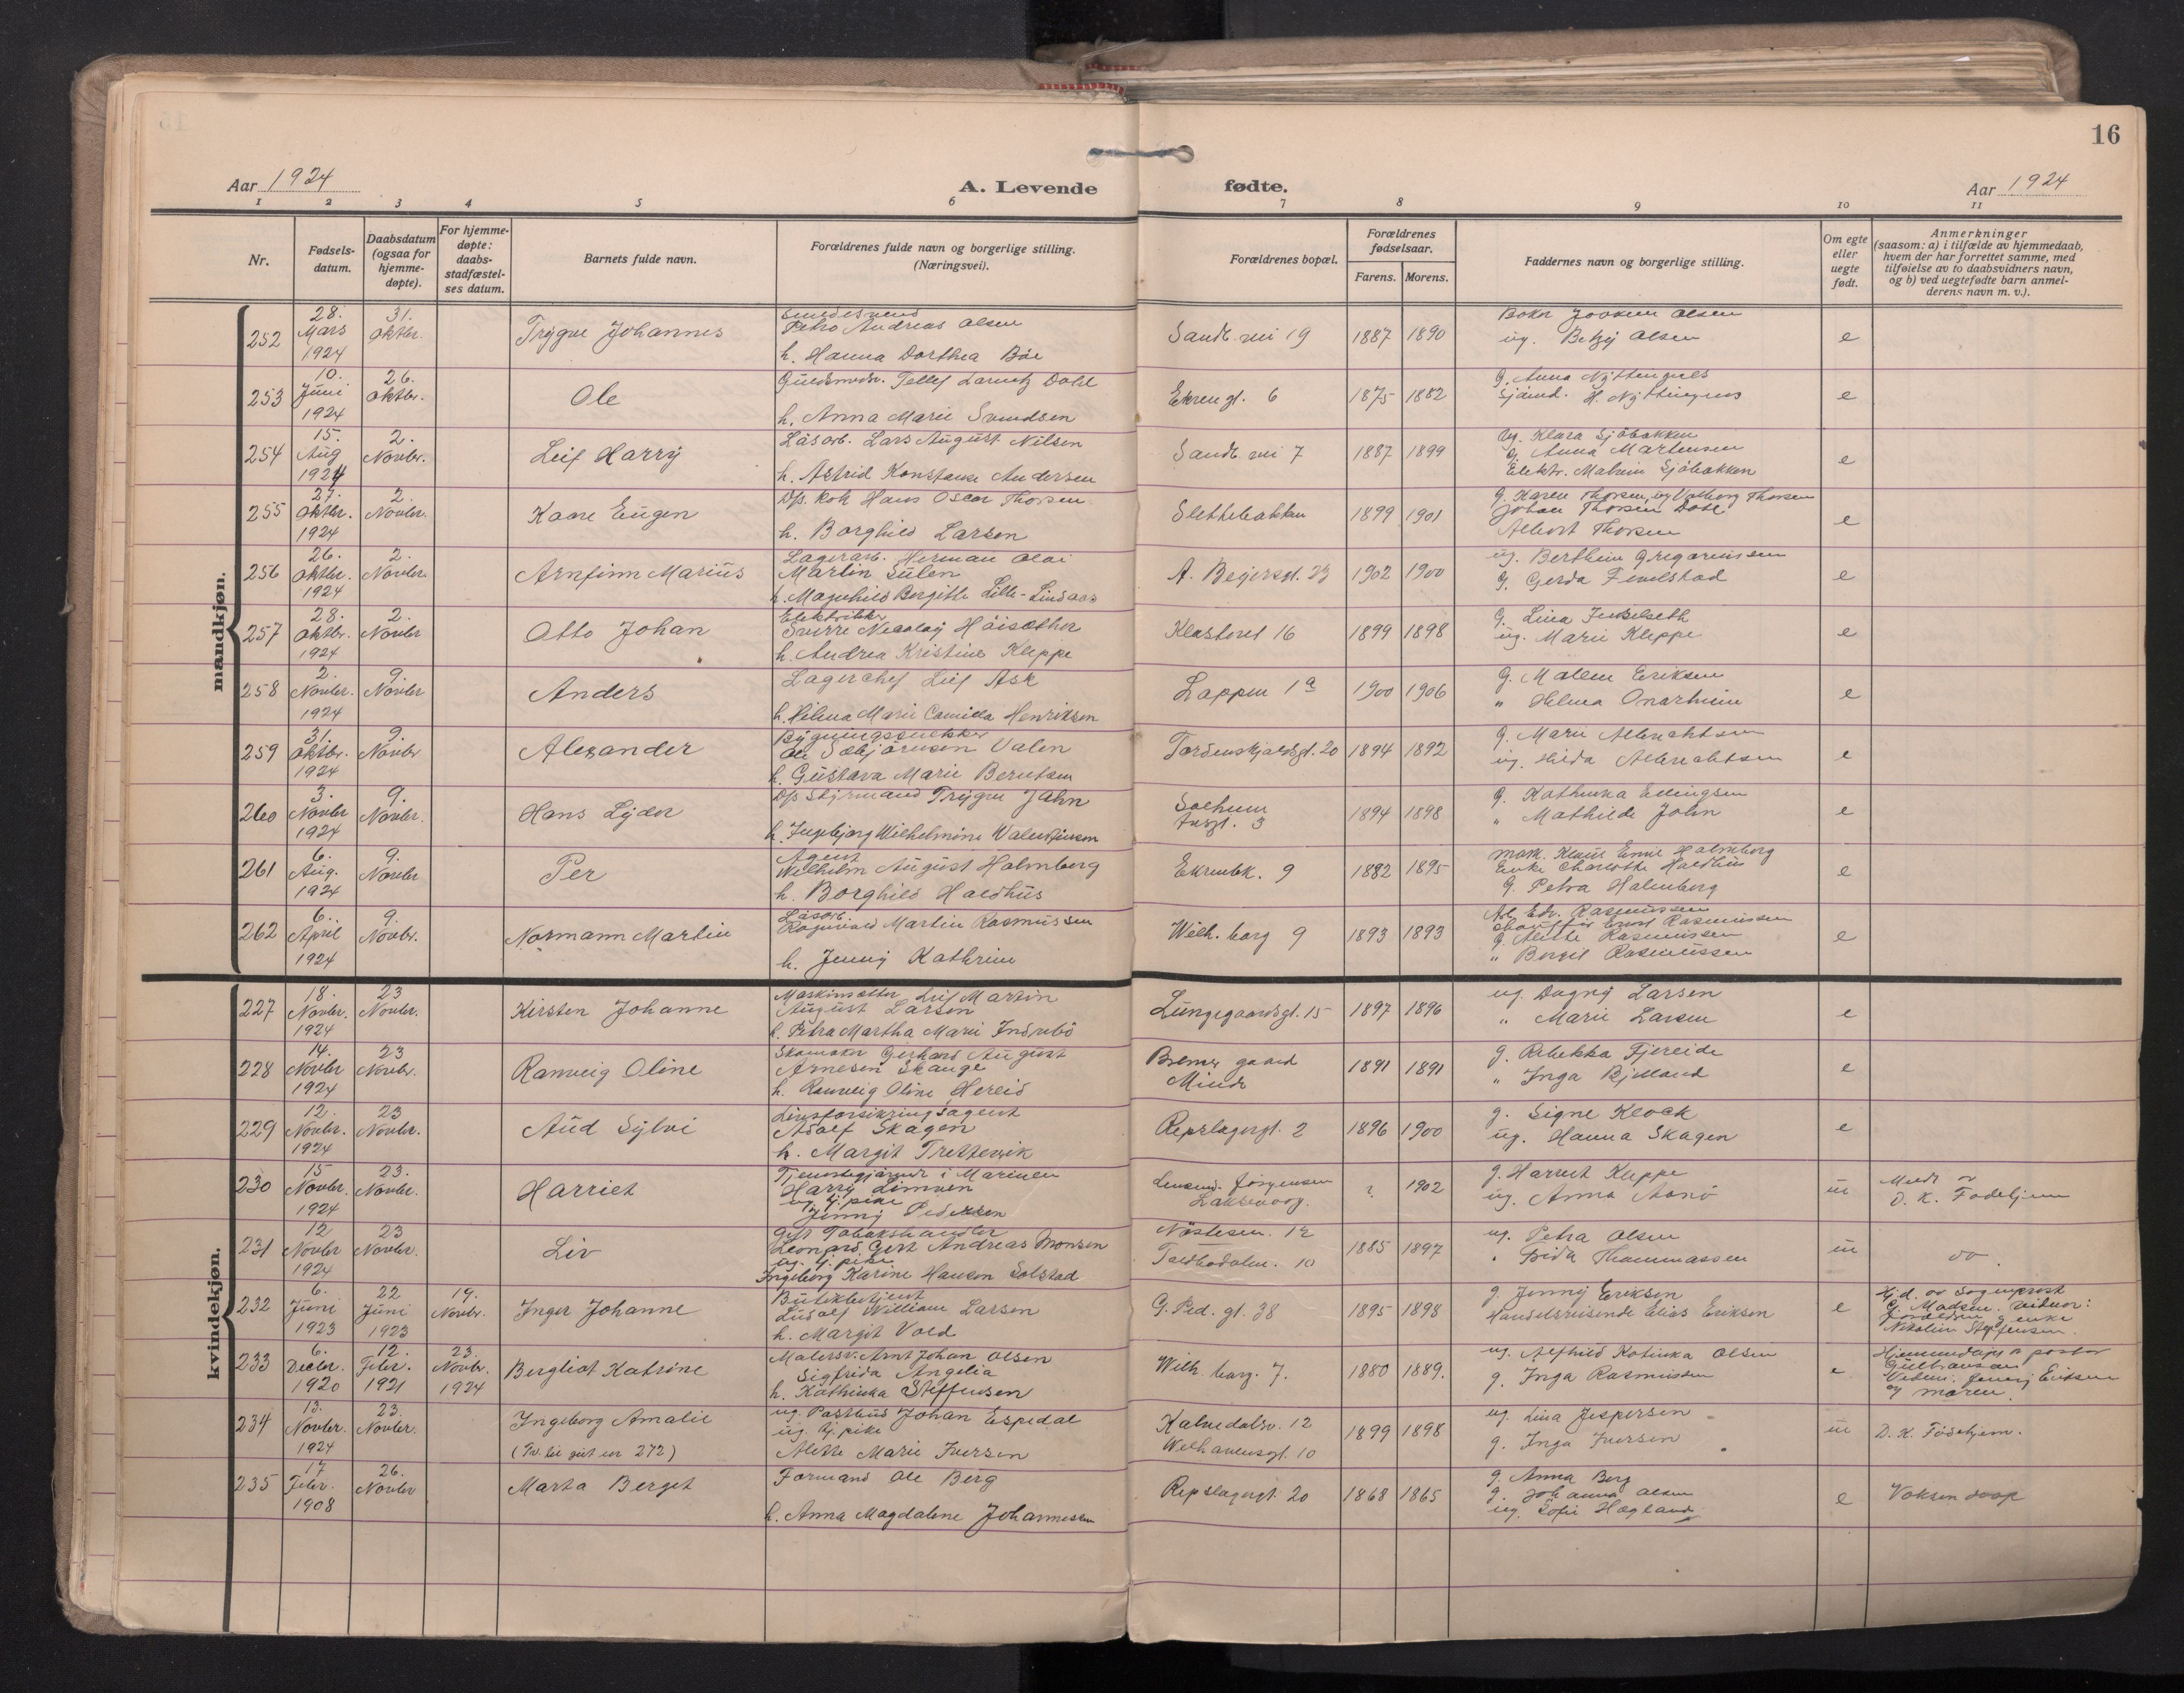 16
Aar 1924
A. Levende
fødte.
Aar 1924
1 2 3 4 5 6 7 8 9 10 11
Nr.
Fødsels-
datum.
Daabsdatum
(ogsaa for
hjemme-
døpte).
For hjemme-
døpte:
daabs-
stadfæstel-
ses datum.
Barnets fulde navn.
Forældrenes fulde navn og borgerlige stilling.
(Næringsvei).
Forældrenes bopæl.
Forældrenes
fødselsaar.
Farens. Morens.
Faddernes navn og borgerlige stilling.
Om egte
eller
uegte
født.
Anmerkninger
(saasom: a) i tilfælde av hjemmedaab,
hvem der har forrettet samme, med
tilføielse av to daabsvidners navn,
og b) ved uegtefødte barn anmel-
derens navn m. v.).
mandkjøn.
252
28.
Mars
1924
31.
Oktbr.
Trygve Johannes
Smedesvend
Petro Andreas Olsen
h. Hanna Dorthea Böe
Sandb. vei 19
1887 1890
Joakim Olsen
ug. Betzy Olsen
e
253
10.
Juni
1924
26.
Oktbr.
Ole
Tellef Dahl
h. Anna Marie Svendsen
Ekreng. 6
1875 1882
g. Anna
H.
e
254
15.
Aug
1924
2.
Novbr.
Leif Harry
Løsarb. Lars August Nilsen
h. Astrid Konstanse Andersen
Sandb. vei 7
1887 1899
ug. Klara Sjöbakken
g. Anna Martensen
Elektr. Malvin Sjöbakken
e
255
27.
Oktbr.
1924
2.
Novbr.
Kaare Eugen
D/s. kok Hans Oscar Thorsen
h. Borghild Larsen
Slettebakken
1899 1901
g. Karen Thorsen, ug Valborg Thorsen
Johan Thorsen Dale
Albert Thorsen
e
256
26.
Oktbr.
1924
2.
Novbr.
Arnfinn Marius
Lagerarb. Herman Olai
Martin Sulen
h. Magnhild Bergitte Lille-Lindaas
A. Beyersgt. 23
1902 1900
ug. Berthin Gregoriussen
g. Gerda Fivelstad
e
257
28.
Oktbr.
1924
2.
Novbr
Otto Johan
Elektriker
Sverre Nicolay Höisæther
h. Andrea Kristine Kleppe
Klosteret 16
1899 1898
g. Lina Inkelseth
ug. Marie Kleppe
e
258
2.
Novbr.
1924
9.
Novbr
Anders
Lagerchef Leif Ask
h. Helena Marie Camilla Henriksen
Lappen 1a
1900 1906
g. Malene Eriksen
" Helma Onarheim
e
259
31.
Oktbr.
1924
9.
Novbr
Alexander
Bygningssnekker
Ole Sæbjörnsen Valen
h. Gustava Marie Berntsen
Tordenskjoldsgt. 20
1894 1892
g. Marie Albrechtsen
ug. Hilda Albrechtsen
e
260
3.
Novbr
1924
9.
Novbr.
Hans Lydor
D/s Styrmand Trygve Jahn
h. Ingebjørg Wilhelmine Valentinsen
Solheim
3
1894 1898
g. Kathinka Ellingsen
" Mathilde Jahn
e
261
6.
Aug.
1924
9.
Novbr
Per
Agent
Wilhelm August Holmberg
h. Borghild Haldhus
Ekrenbk. 9
1882 1895
Mask. Klaus Emil Holmberg
Enke Charlotte Haldhus
g. Petra Holmberg
e
262
6.
April
1924
9.
Novbr.
Normann Martin
Løsarb.
Ragnvald Martin Rasmussen
h. Jenny Kathrine
Wilh. barg 9
1893 1893
Arb. Edv. Rasmussen
Chauffør Rasmussen
g. Alette Rasmussen
" Bergit Rasmussen
e
kvindekjøn.
227
18.
Novbr.
1924
23
Novbr.
Kirsten Johanne
Maskinsetter Leif Martin
August Larsen
h. Petra Martha Marie Indrebö
Lungegaardsgt. 15
1897 1896
ug. Dagny Larsen
" Marie Larsen
e
228
14.
Novbr
1924
23
Novbr.
Ranveig Oline
Skomaker Gerhard August
Arnesen Skauge
h. Ranveig Oline Hereid
Bremer gaard
Minde
1891 1891
g. Rebekka Fjereide
" Inga Bjelland
e
229
12.
Novbr.
1924
23
Novbr.
Aud Sylvi
Livsforsikringsagent
Adolf Skagen
h. Margit Trettevik
Repslagergt. 2
1896 1900
g. Signe Klock
ug. Hanna Skagen
e
230
15
Novbr.
1924
23.
Novbr.
Harriet
Tjenestegjørende i Marinen
Harry Simonsen
ug. tj. pike
Jenny Pedersen
Jørgensen
Laksevaag.
? 1902
g. Harriet Kleppe
ug. Anna Aanö
u
D. K. Fødehjem
231
12
Novbr
1924
23
Novbr.
Liv
Gift Tobakshandler
Leonard Gert Andreas Monsen
ug. tj. pike
Ingeborg Karine Hansen Solstad
Nøstesm. 12
Toldbodalm. 10
1885 1897
ug. Petra Olsen
" Frida Thommassen
u
232
6.
Juni
1923
22
Juni
1923
19.
Novbr.
Inger Johanne
Butikbetjent
Ludolf William Larsen
h. Margit Vold
G. Ped. gt. 38
1895 1898
g. Jenny Eriksen
Handelsreisende Elias Eriksen
e
Hj.d. av Sogneprest
G. Madsen. Vidner:
Forældrene og enke
Nikoline Steffensen.
233
6.
Decbr.
1920
12.
Febr.
1921
23.
Novbr.
1924
Bergliot Katrine
Malersv. Arnt Johan Olsen
Sigfrida Angelia
h. Kathinka Steffensen
Wilh. barg. 7.
1880 1889.
ug. Alfhild Katinka Olsen
g. Inga Rasmussen
e
Hjemmedøpt av pastor
Gulbransen
Vidner: Jenny Eriksen
og moren.
234
13.
Novbr.
1924
23.
Novbr.
Ingeborg Amalie
(Tv. til gut nr 272)
ug. Postbud Johan Espedal
ug. tj. pike
Alette Marie Iversen
Kalvedalsv. 12
10
1899 1898
ug. Lina Jespersen
g. Inga Iversen
u
D. K. Fødehjem.
235
17
Febr.
1908
26.
Novbr
Marta Berget
Formand Ole Berg
h. Anna Magdalene Johannessen
Repslagergt. 20
1868 1865
g. Anna Berg
g. Johanna Olsen
ug. Sofie Hægland
e
Voksen daap